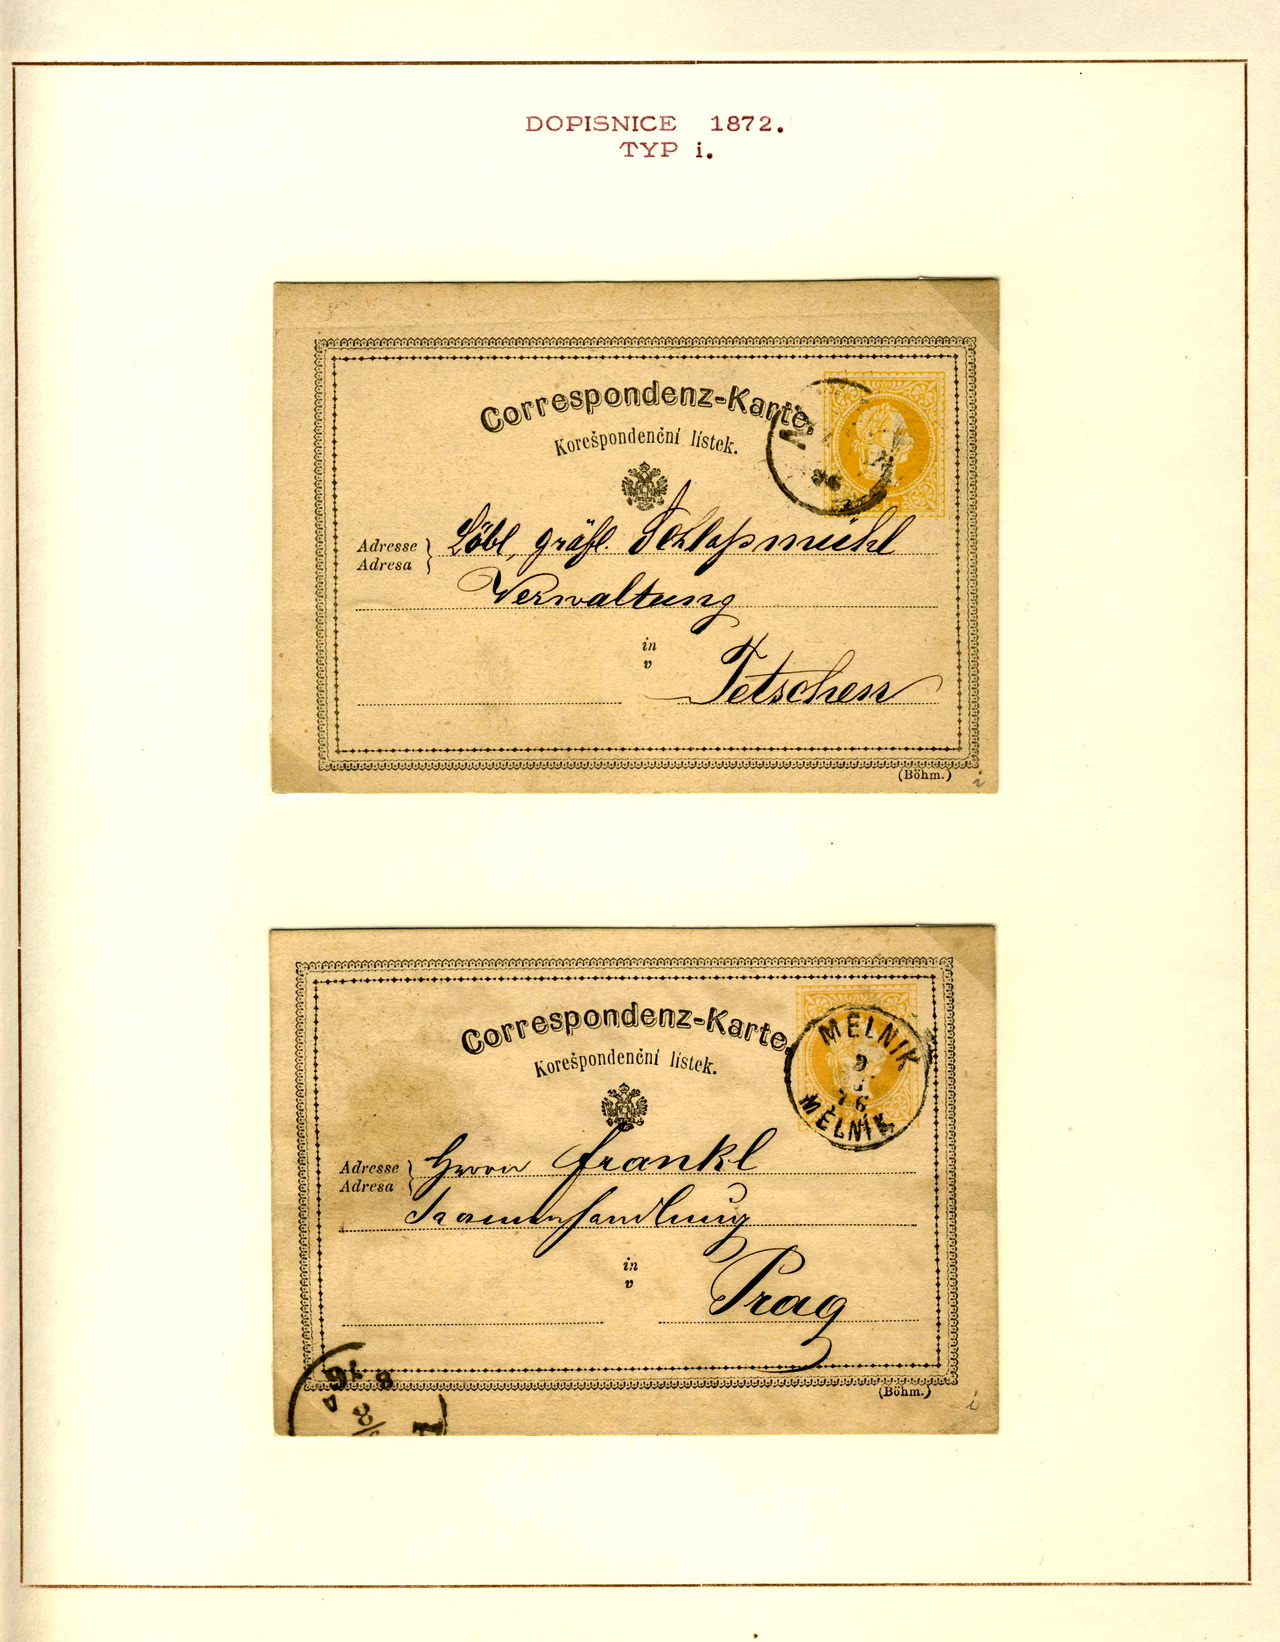 DOPISNICE 1872.
TYP i.
Correspondenz-Karte.
Korešpondenční lístek.
Adresse
Adresa
Löbl, gräfl.
Verwaltung
in
v
Tetschen
(Böhm.)
i
Correspondenz-Karte.
Korešpondenční lístek.
MELNIK
9
76
MĚLNÍK
Adresse
Adresa
Herrn Frankl
in
v
Prag
(Böhm.)
i
8
76